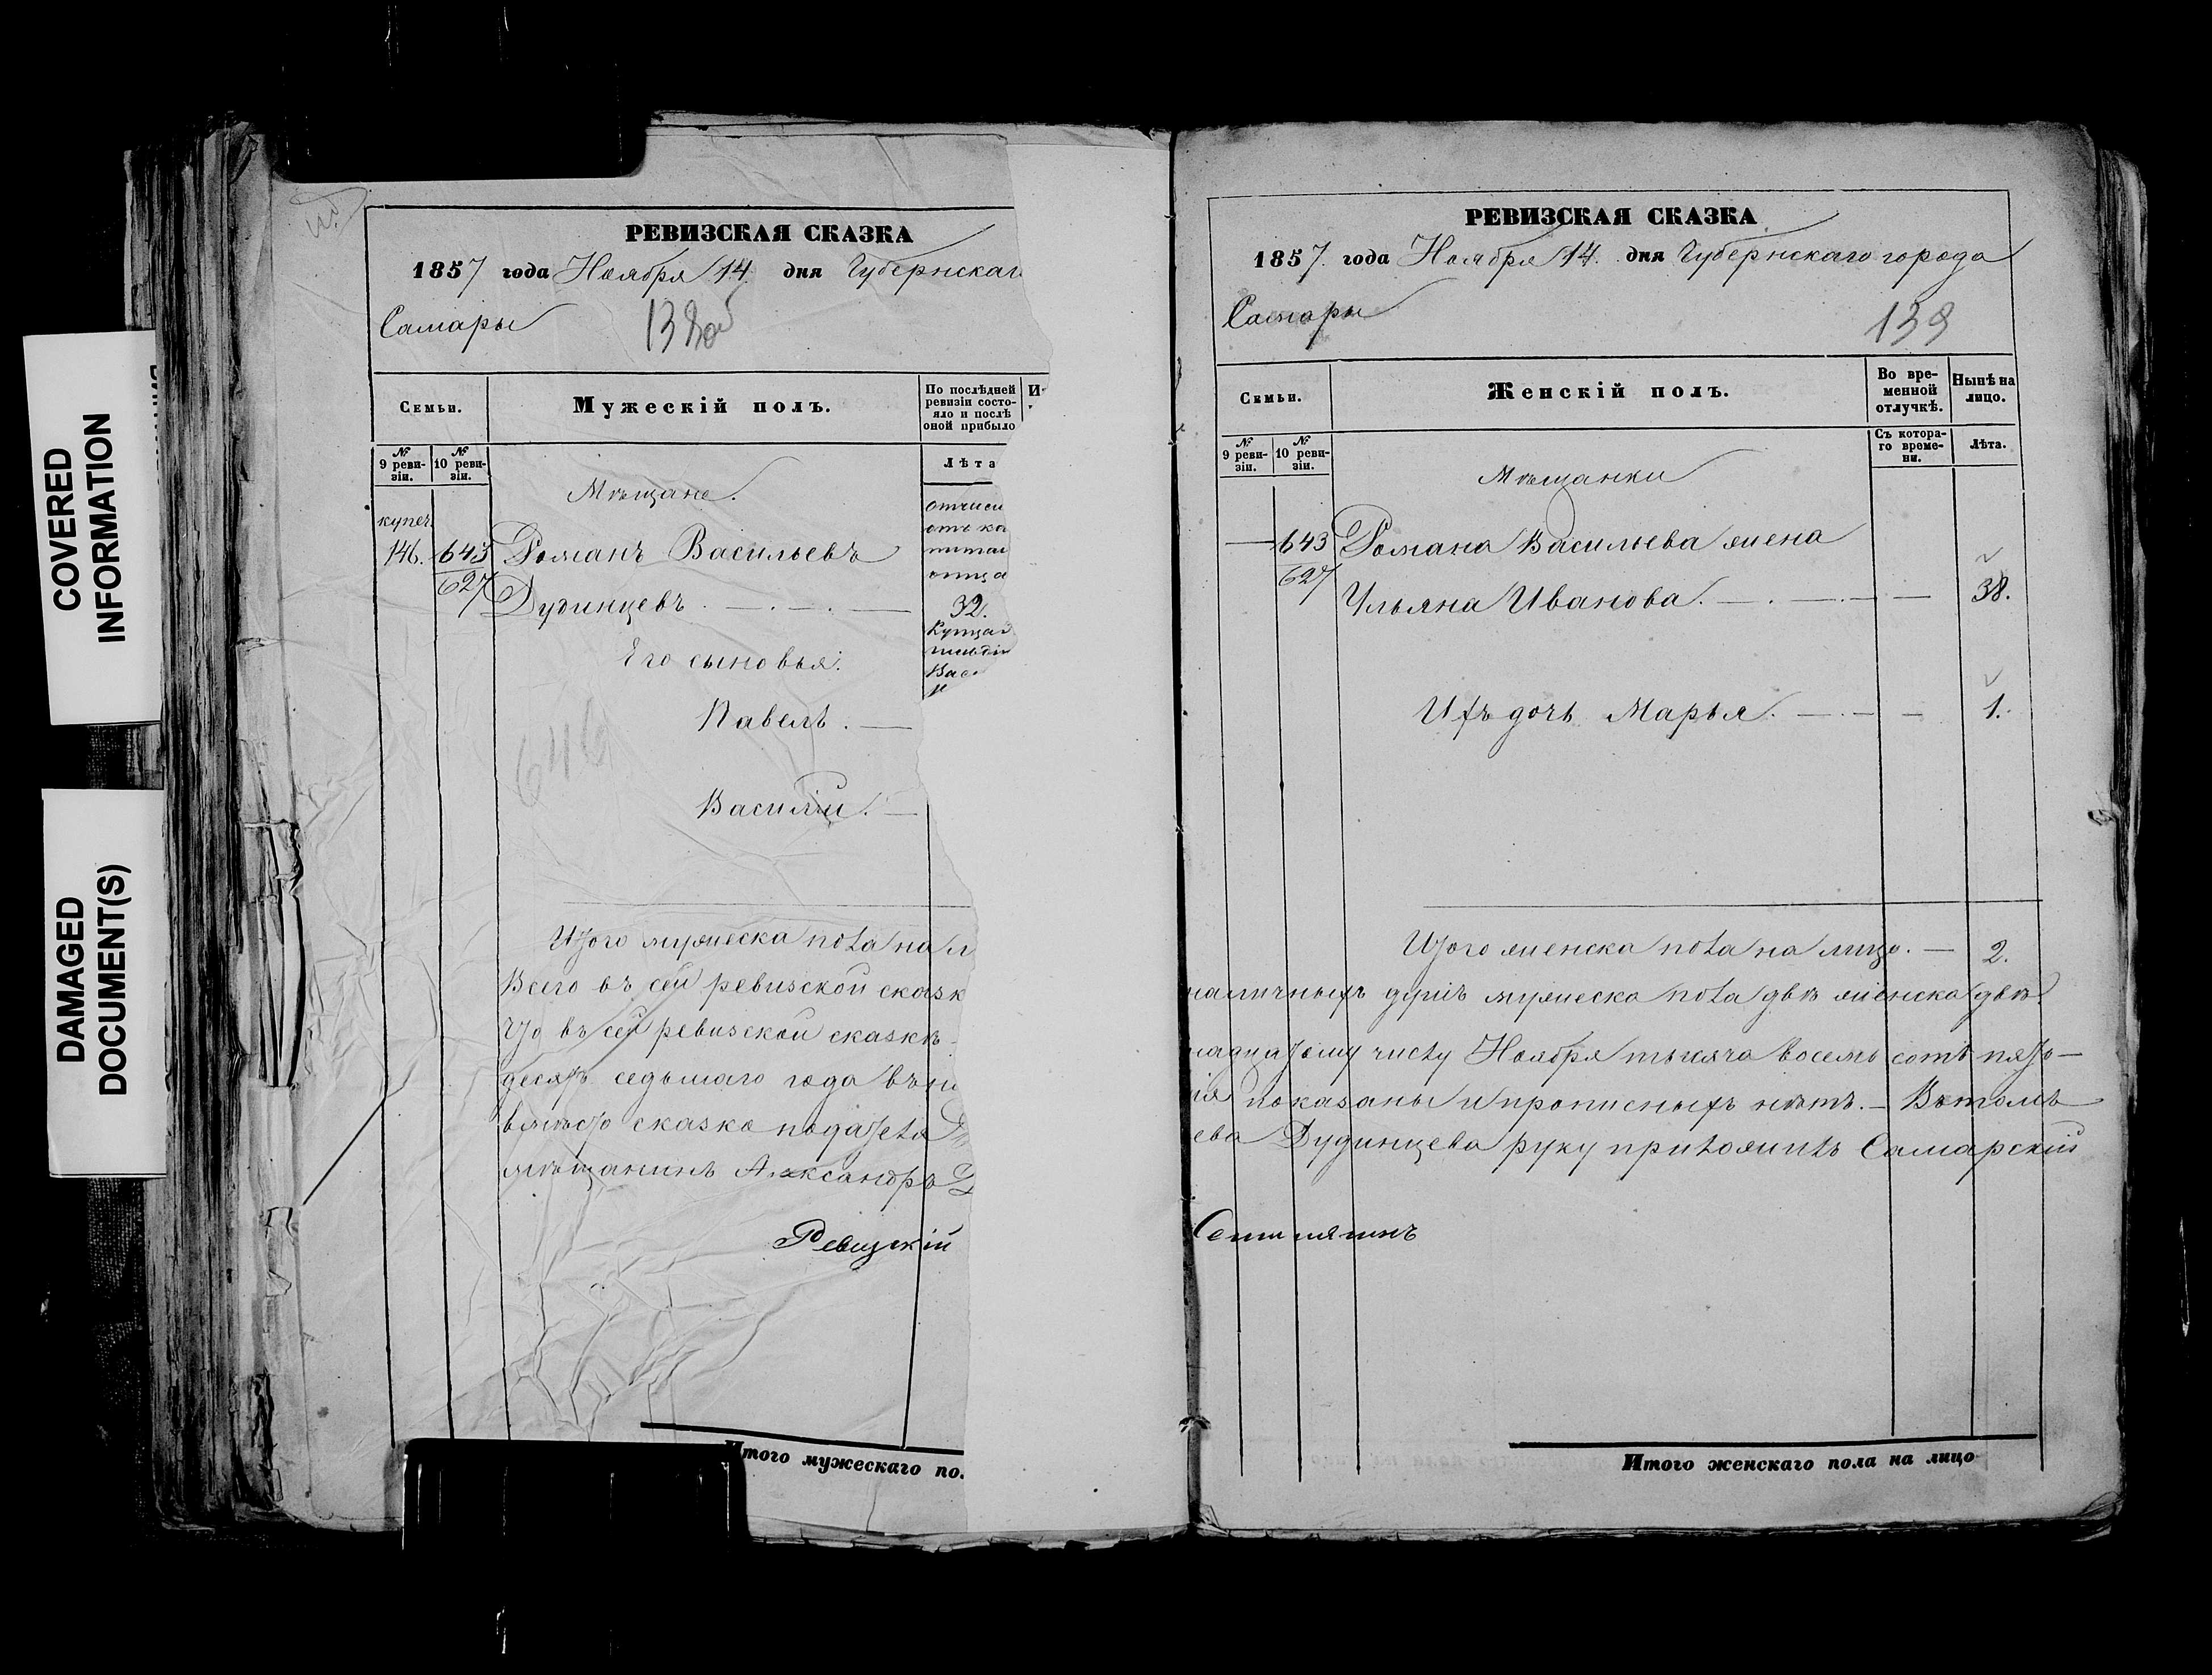 COVERED
INFORMATION
DAMAGED
DOCUMENT(S)
РЕВИЗСКАЯ СКАЗКА
1857 года Ноября 14 дня Губернскаг
Самары
138об
Семьи.
Мужескій полъ.
По послѣдней
ревизіи состо-
яло и послѣ
оной прибыло
№
9 реви-
зіи.
№
10 реви-
зіи.
Лѣта
Мѣщане.
купеч.
146.
643
627
Романъ Васильевъ
Дудинцевъ.
отчисл
отъ ка
питал
отца
32.
Его сыновья:
Павелъ.
646
Василій.
Итого мужеска пола на л
Всего въ сей ревизской сказк
Что въ сей ревизской сказкѣ
десятъ седьмаго года въ
сказка
мѣщанинъ Александръ
Ревизскій
Итого мужескаго по
РЕВИЗСКАЯ СКАЗКА
1857. года Ноября 14. дня Губернскаго города
Самары
139
Семьи.
Женскій полъ.
Во вре-
менной
отлучкѣ.
Нынѣ на
лицо.
№
9 реви-
зіи.
№
10 реви-
зіи.
Съ котора-
го време-
ни.
Лѣта.
Мѣщанки
643
627
Романа Васильева жена
Ульяна Иванова.
38.
Ихъ дочь Марья.
1.
Итого женска пола на лицо.
2.
наличныхъ душъ мужеска пола двѣ женска двѣ
надцатому числу Ноября тысяча восемь сотъ пять-
ія показаны и прописныхъ нѣтъ. Въ томъ
ева Дудинцева руку приложилъ Самарскій
Итого женскаго пола на лицо